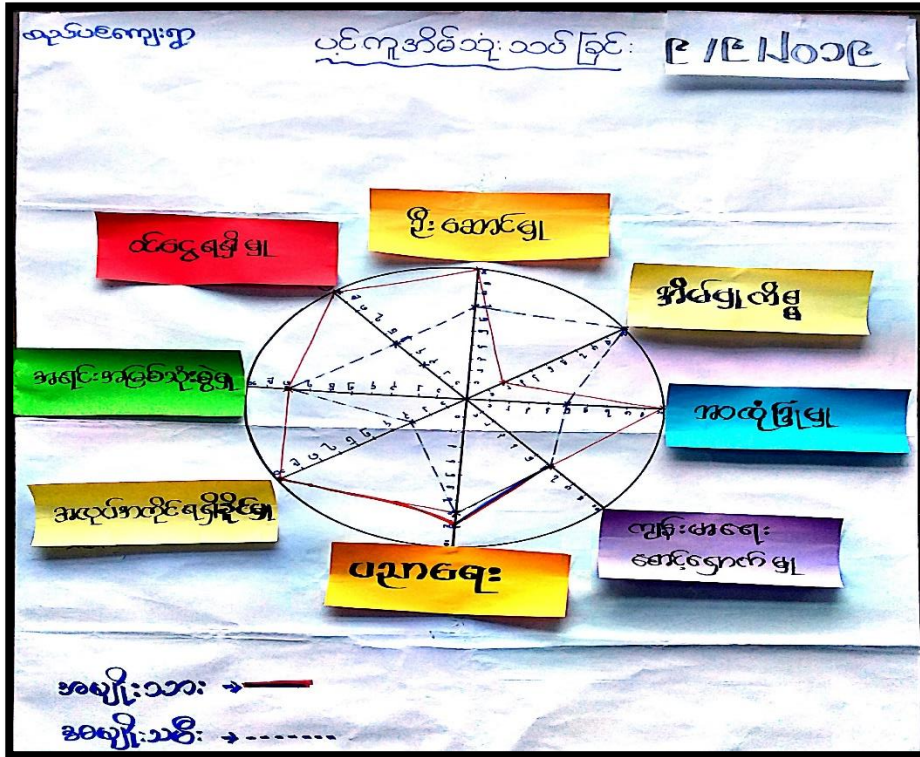 ပင့်ကူအိမ်သုံးသပ်ခြင်း
၉/၉/၂၀၁၉
ဦးဆောင်မှု
ဝင်ငွေရရှိမှု
အိမ်မှုကိစ္စ
အရင်းအမြစ်သုံးစွဲမှု
အထုံပြုမှု
အလုပ်အကိုင်ရရှိနိုင်မှု
ကျန်းမာရေး
စောင့်ရှောက်မှု
ပညာရေး
အမျိုးသား →
အမျိုးသမီး →